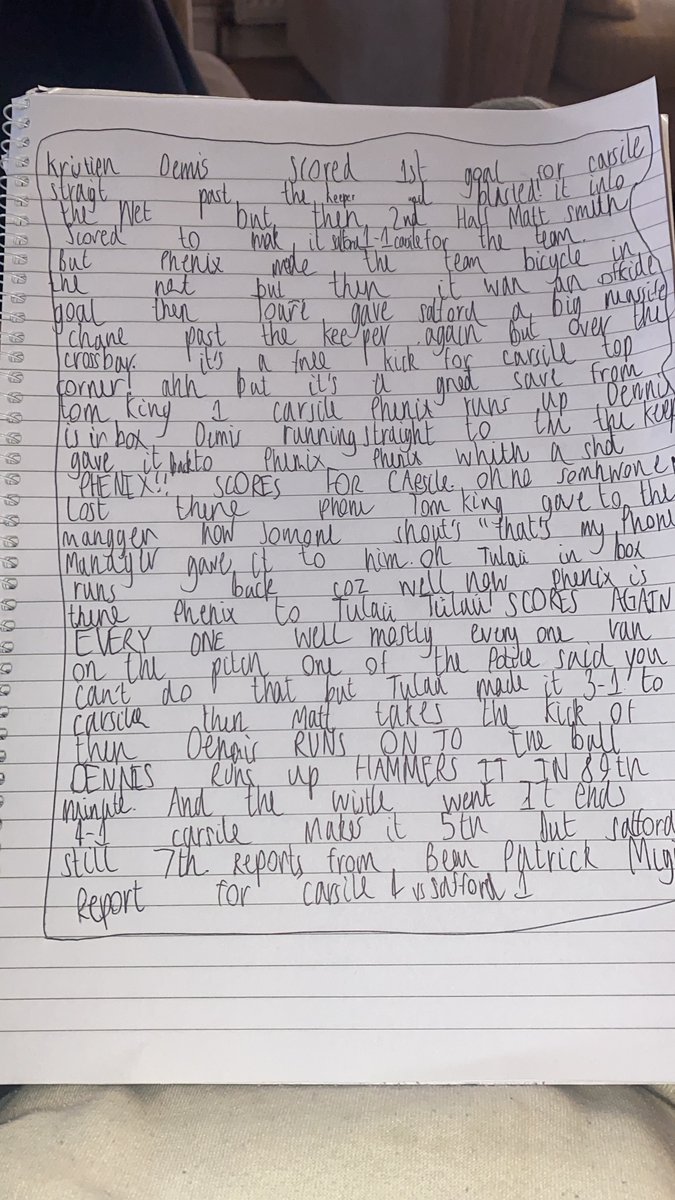 Kristien Demis scored 1st goal for carsile
stragt past the keeper and blasted it into
the Net but then 2nd Half Matt smith
scored to mak it salford 1-1 carsile for the team.
But Phenix made the team bicycle in
the net but then it wan an offside
goal then gave salford a big massife
chane past the keeper again but over the
crossbar. it's a free kick for carsile top
corner! ahh but it's a gred save from
tom king 1 carsile Phenix runs up Dennis
is in box Demis running straight to the the keep
gave it back to Phenix Phenix whith a shot
PHENIX!! SCORES FOR CArsile. oh no somhwone
Lost there phone Tom king gave to the
mangger now Jomone shout's "that's my Phone
Mandgw gave it to him. oh Tulaii in box
runs back coz well now phenix is
there Phenix to Tulaii Tulaii SCORES AGAIN
EVERY ONE well mostly every one ran
on the pitch one of the said you
can't do that but Tulaii made it 3-1 to
carsile then Matt takes the kick of
then Dennis RUNS ON TO the ball
DENNIS runs up HAMMERS IT IN 89th
minute. And the wistle went It ends
4-1 carsile makes it 5th but salford
still 7th. Reports from Bean Patrick
Report for carsile 4 vs salford 1